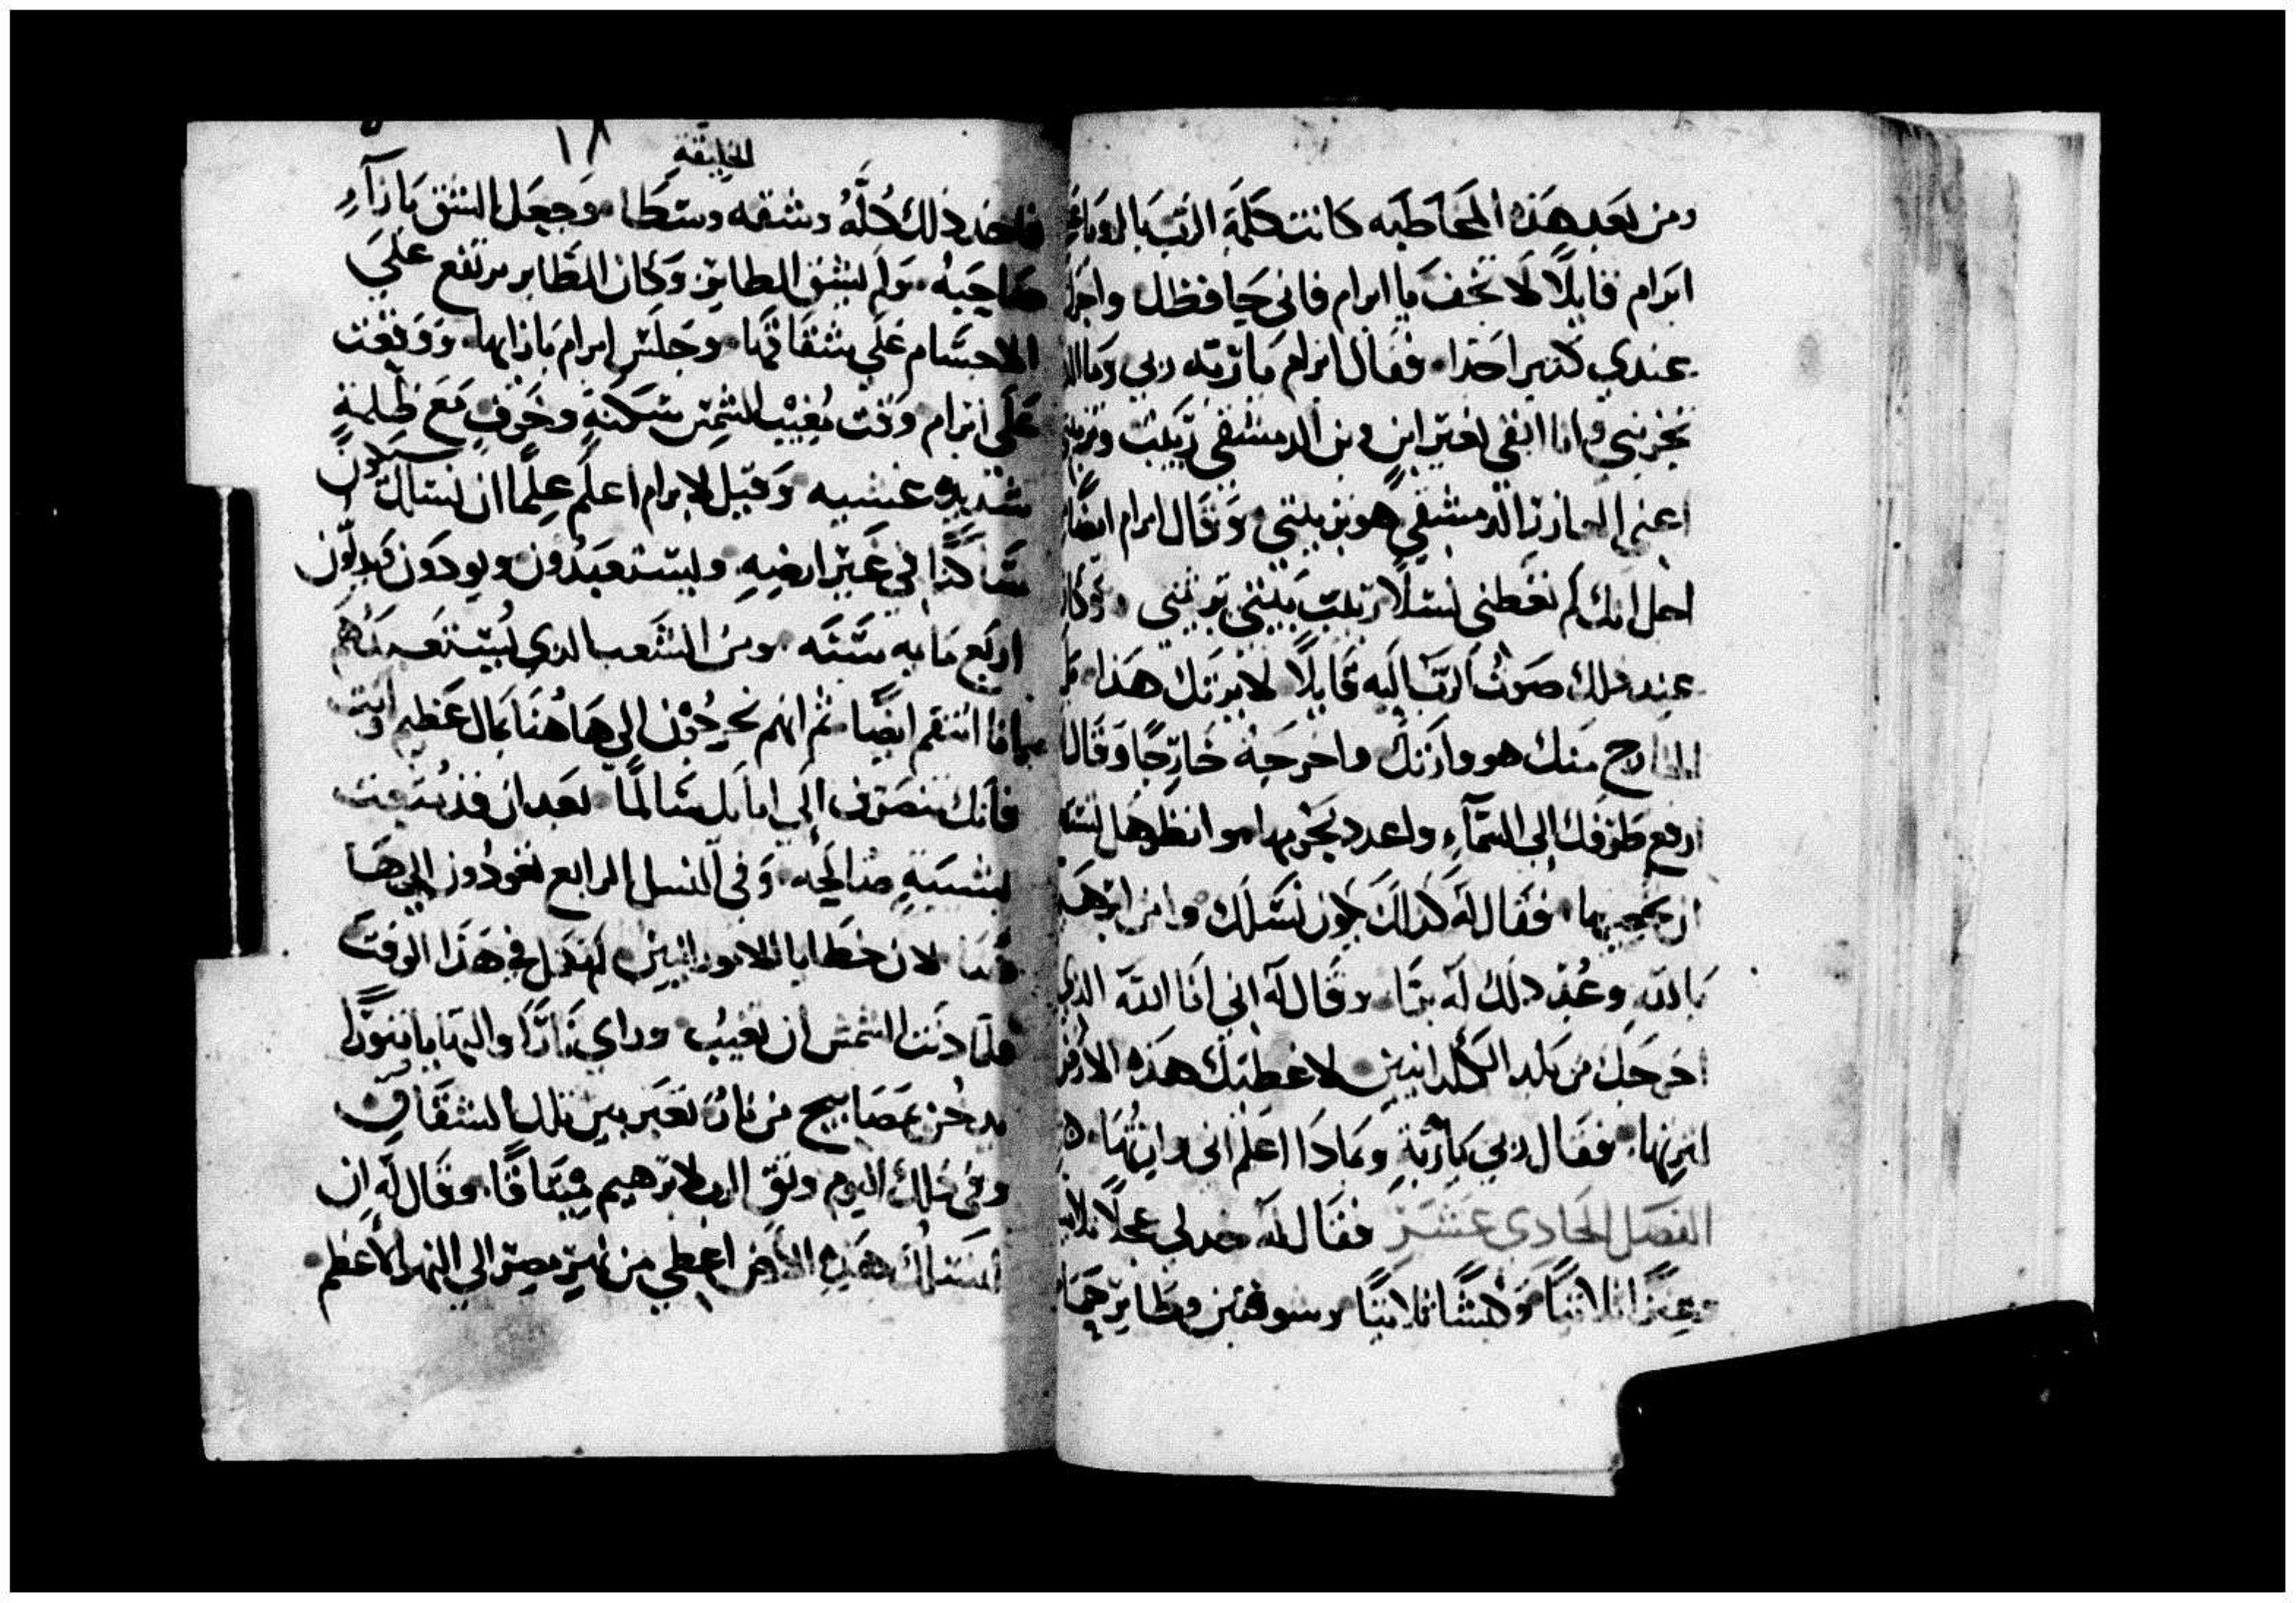 ومن بعد هذه المخاطبه كانت كلمة الرب بالرويا الي
ابرام قايلًا لا تخف يا ابرام فاني حافظك واجرك
عندي كثير احدا. فقال ابرام ما ربه ربي وما الذي
تخزيني وانا ابقي لغير ابن وبن الدمشقي ربيبت وبن بيتي
اعني العازر الدمشقي هو بن بيتي. وقال ابرام ايضًا
اجل انك لم تعطني نسلًا ربيب بيتي يرثني. وكان
عند ذلك صوت الرب اليه قايلًا لا يرثك هذا بل
الخارج منك هو وارثك واخرجه خارجًا وقال
ارفع طرفك الى السمآء واعدد نجومها. وانظر هل تستطيع
ان تحصيها. فقال له كذلك يكون نسلك وامن ابرهيم
بالله وعُدّ ذلك له برًا. وقال له اني انا الله الذي
اخرجك من بلد الكلدانيين لاعطيك هذه الارض
لترثها. فقال ربي يا ربه وبماذا اعلم اني وارثها.
الفصل الحادي عشر فقال له خد لي عجلًا ثلاثيا
وعنزًا ثلاثيًا وكبشًا ثلاثيًا وشوفنين وطاير حمام
الخليقة ١٨
فاخد ذلك كلَّهُ وشقه وسطا. وجعل الشق بازآءِ
صاحبه. ولم يشق الطاير. وكان الطاير مرتفع علي
الاجسام علي شقاقها. وجلس ابرام بازايها. ووقعت
على ابرام وقت مغيب الشمس سكتةٍ وخوفٍ مع ظلمةٍ
شديدة غشيه وقيل لابرام اعلم علمًا ان نسلك سيكون
ساكنًا في غير ارضه. ويستعبدون ويودون ويذلون
اربع مايه سنه. ومن الشعب الذي يستعبدهم
بماذا انتقم ايضًا. ثم انهم يخرجون الي هاهنا بمال عظيم وانت
فانك تنصرف الي ابايك سالمًا بعد ان قد شبعت
بشيبةٍ صالحه. وفي النسل الرابع يعودون الي ها
هنا لان خطايا الامورانيين لم تكمل في هذا الوقت
فلما دنت الشمش ان تغيب وراي نارًا والتهابا تنورًا
يدخن ومصابيح من نار تعبر بين تلك الشقاق
وفي ذلك اليوم وثق الرب لابرهيم ميثاقًا. وقال له ان
لنسلك هذه الارض اعطي من نهر مصر الي النهر الاعظم.